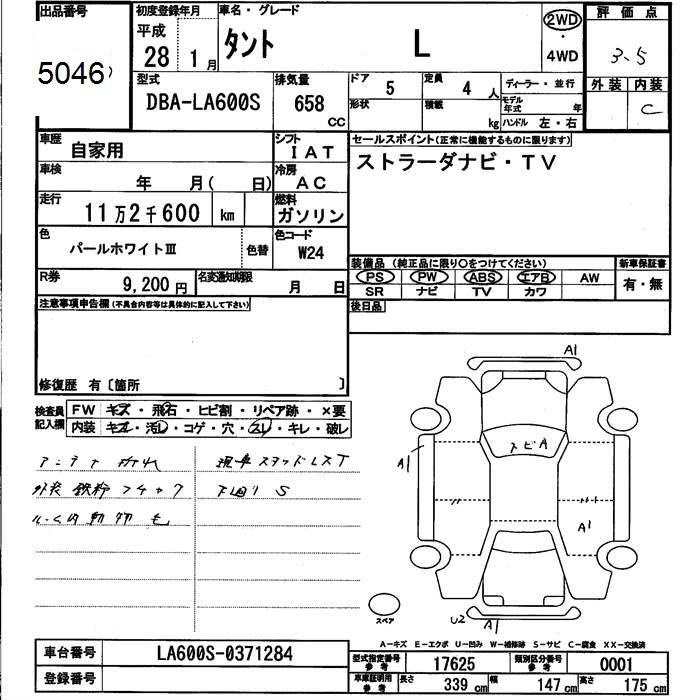 出品番号 初度登録年月 車名・グレード 評価点
5046 平成 28年 1月 タント L 2WD・4WD 3.5
外装 内装 C
型式 DBA-LA600S 排気量 658 CC ドア 5 定員 4 人 ディーラー・並行
形状 積載 kg モデル年式 年 ハンドル 左・右
車歴 自家用 シフト IAT セールスポイント(正常に機能するものに限ります)
車検 年 月( 日) 冷房 AC ストラーダナビ・TV
走行 11万2千600 km 燃料 ガソリン
色 パールホワイトⅢ 色替 色コード W24
装備品 (純正品に限り○をつけてください) 新車保証書
R券 9,200円 名変通知期限 月 日 PS PW ABS エアB AW 有・無
SR ナビ TV カワ
注意事項申告欄(不具合内容等は具体的に記入して下さい) 後日品
修復歴 有〔箇所 〕
検査員記入欄 FW キズ・飛石・ヒビ割・リペア跡・×要
内装 キズ・汚レ・コゲ・穴・スレ・キレ・破レ
アンテナ折れ 現車スタッドレスT
外装鉄粉 下回りS
動物毛
A1
トビA
A1
A1
スペア
U2 A1
A-キズ E-エクボ U-凹み W-補修跡 S-サビ C-腐食 XX-交換済
車台番号 LA600S-0371284 型式指定番号 参考 17625 類別区分番号 参考 0001
登録番号 車庫証明用 参考 長さ 339 cm 幅 147 cm 高さ 175 cm